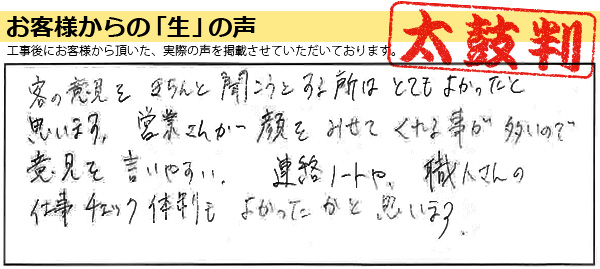 お客様からの「生」の声
工事後にお客様から頂いた、実際の声を掲載させていただいております。
太鼓判
客の意見を きちんと聞こうとする所は とてもよかったと
思います。営業さんが 顔を みせて くれる事が 多いので
意見を 言いやすい。 連絡ノートや、職人さんの
仕事チェック体制も よかったかと思います。